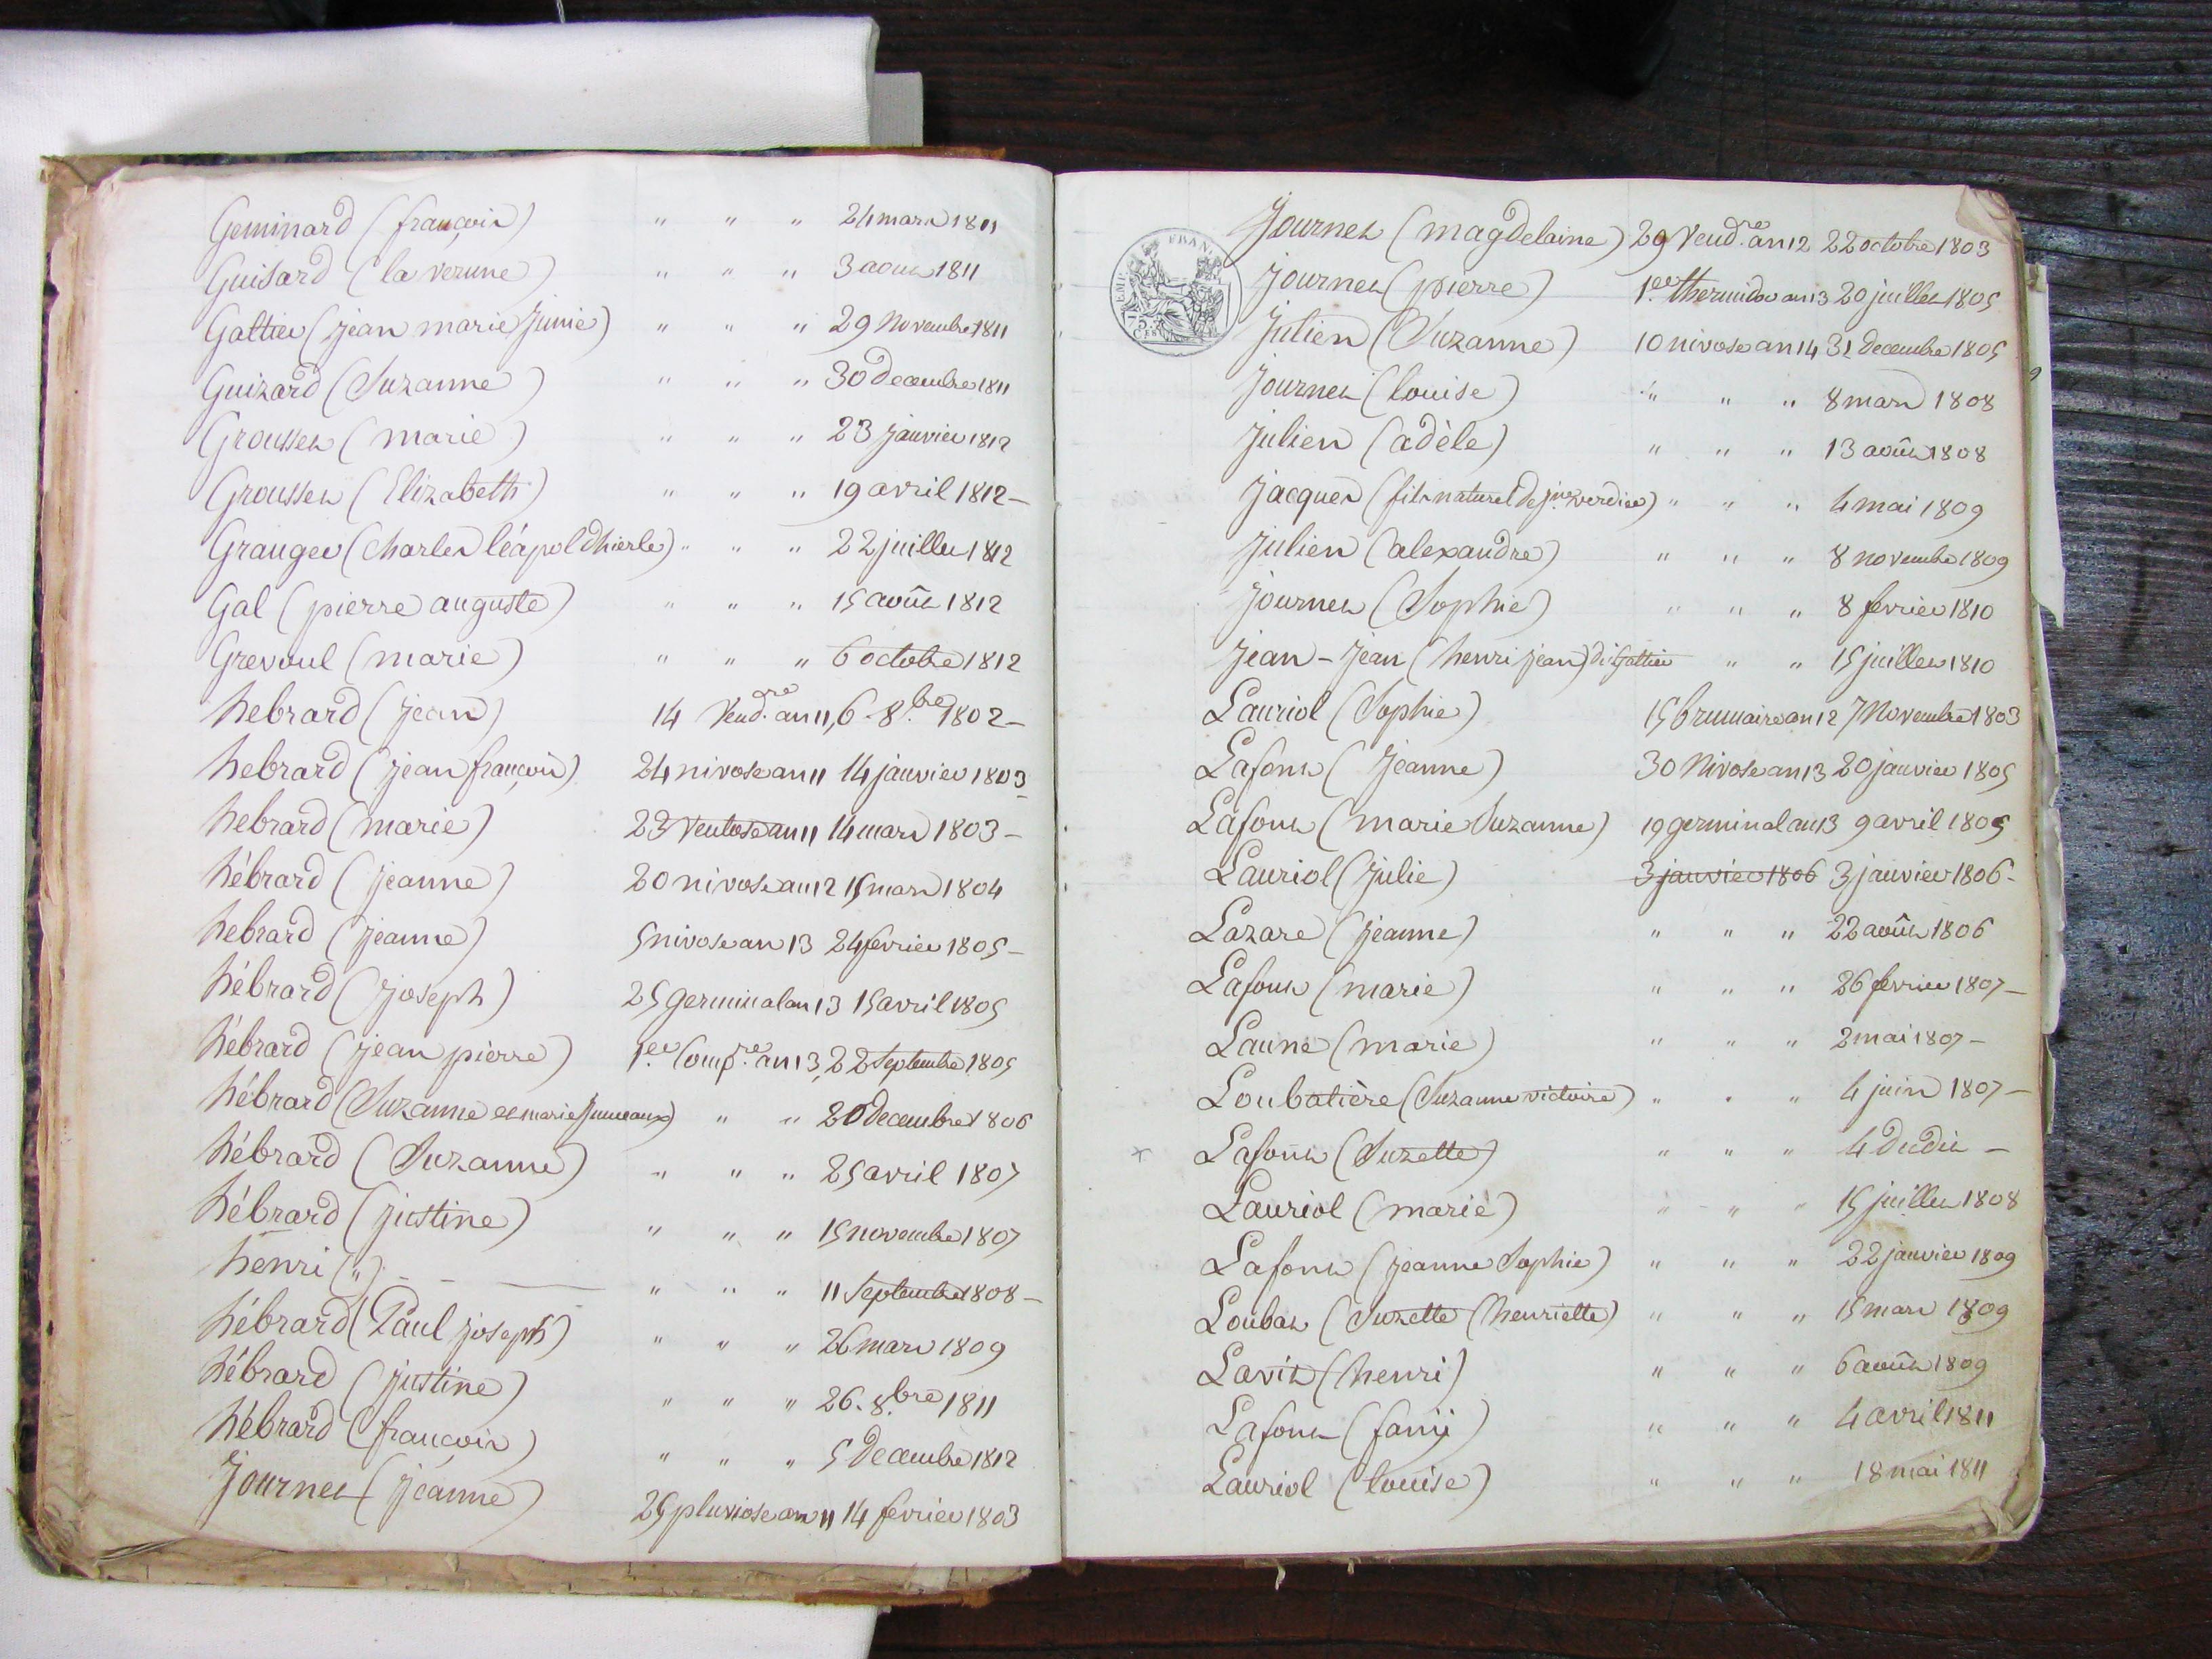 Geminard (françois) " " " 24 mars 1811
Guisard (la verune) " " " 3 aout 1811
Galtier (jean marie junie) " " " 29 Novembre 1811
Guizard (Suzanne) " " " 30 Decembre 1811
Grousset (marie) " " " 23 janvier 1812
Grousset (Elizabeth) " " " 19 avril 1812 -
Granger (charles léopold hierle) " " " 22 juillet 1812
Gal (pierre auguste) " " " 15 août 1812
Grevoul (marie) " " " 6 octobre 1812
hebrard (jean) 14 Vend.re an 11, 6 - 8.bre 1802 -
hebrard (jean françois) 24 nivose an 11 14 janvier 1803
hebrard (marie) 23 Ventose an 11 14 mars 1803 -
hébrard (jeanne) 20 nivose an 12 15 mars 1804
hebrard (jeanne) 5 nivose an 13 24 fevrier 1805 -
hébrard (joseph) 25 germinal an 13 15 avril 1805
hébrard (jean pierre) 1.er Comp.re an 13, 22 Septembre 1805
hébrard (Suzanne et marie jumeaux) " " 20 Decembre 1806
hébrard (Suzanne) " " " 25 avril 1807
hébrard (justine) " " " 15 novembre 1807
henri (") - - — " " " 11 Septembre 1808 -
hébrard (Paul joseph) " " " 26 mars 1809
hébrard (justine) " " " 26 . 8.bre 1811
hébrard (françois) " " " 5 Decembre 1812
Journet (jeanne) 25 pluviose an 11 14 fevrier 1803
Journet (magdelaine) 29 Vend.re an 12 22 octobre 1803
journet (pierre) 1.er thermidor an 13 20 juillet 1805
julien (Suzanne) 10 nivose an 14 31 decembre 1805
journet (louise) " " " 8 mars 1808
julien (adèle) " " " 13 août 1808
jacques (fils naturel de j.ne verdier) " " " 4 mai 1809
julien (alexandre) " " " 8 novembre 1809
journet (Sophie) " " " 8 fevrier 1810
jean - jean (henri jean) dit Galtier " " 15 juillet 1810
Lauriol (Sophie) 15 brumaire an 12 7 Novembre 1803
Lafont (jeanne) 30 Nivose an 13 20 janvier 1805
Lafont (marie Suzanne) 19 germinal an 13 9 avril 1805
Lauriol (julie) 3 janvier 1806 3 janvier 1806 -
Lazare (jeanne) " " " 22 août 1806
Lafont (marie) " " " 26 fevrier 1807 -
Laune (marie) " " " 2 mai 1807 -
Loubatière (Suzanne victoire) " " " 4 juin 1807 -
x Lafont (Suzette) " " " 4 dudit -
Lauriol (marie) " " " 15 juillet 1808
Lafont (jeanne Sophie) " " " 22 janvier 1809
Loubat (Suzette (henriette) " " " 15 mars 1809
Lavit (henri) " " " 6 août 1809
Lafont (fanij) " " " 4 avril 1811
Lauriol (louise) " " " 18 mai 1811